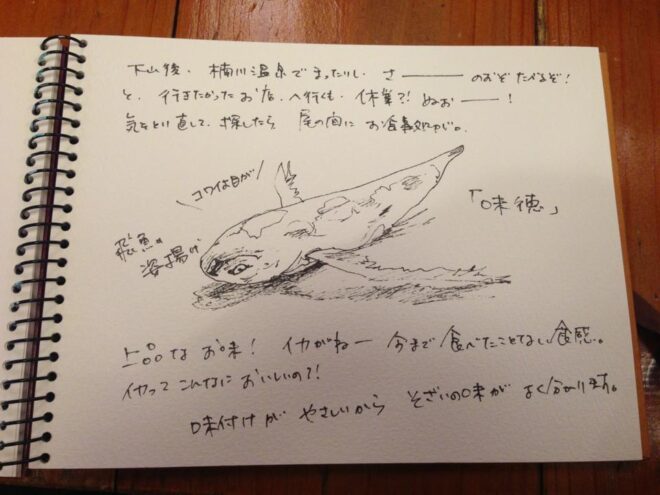 下山後、楠川温泉でまったりし、さ——のおぞ たべるぞ!
と、行きたかった お店、へ行くも、休業?! ぬぉ——!
気をとり直して、探したら 尾の間に お食事処が。
コワイは目が
「味徳」
飛魚の
姿揚げ
上品な お味! イカがねー 今まで 食べたことない 食感。
イカって こんなに おいしいの?!
味付けが やさしいから そざいの味が よく分かります。